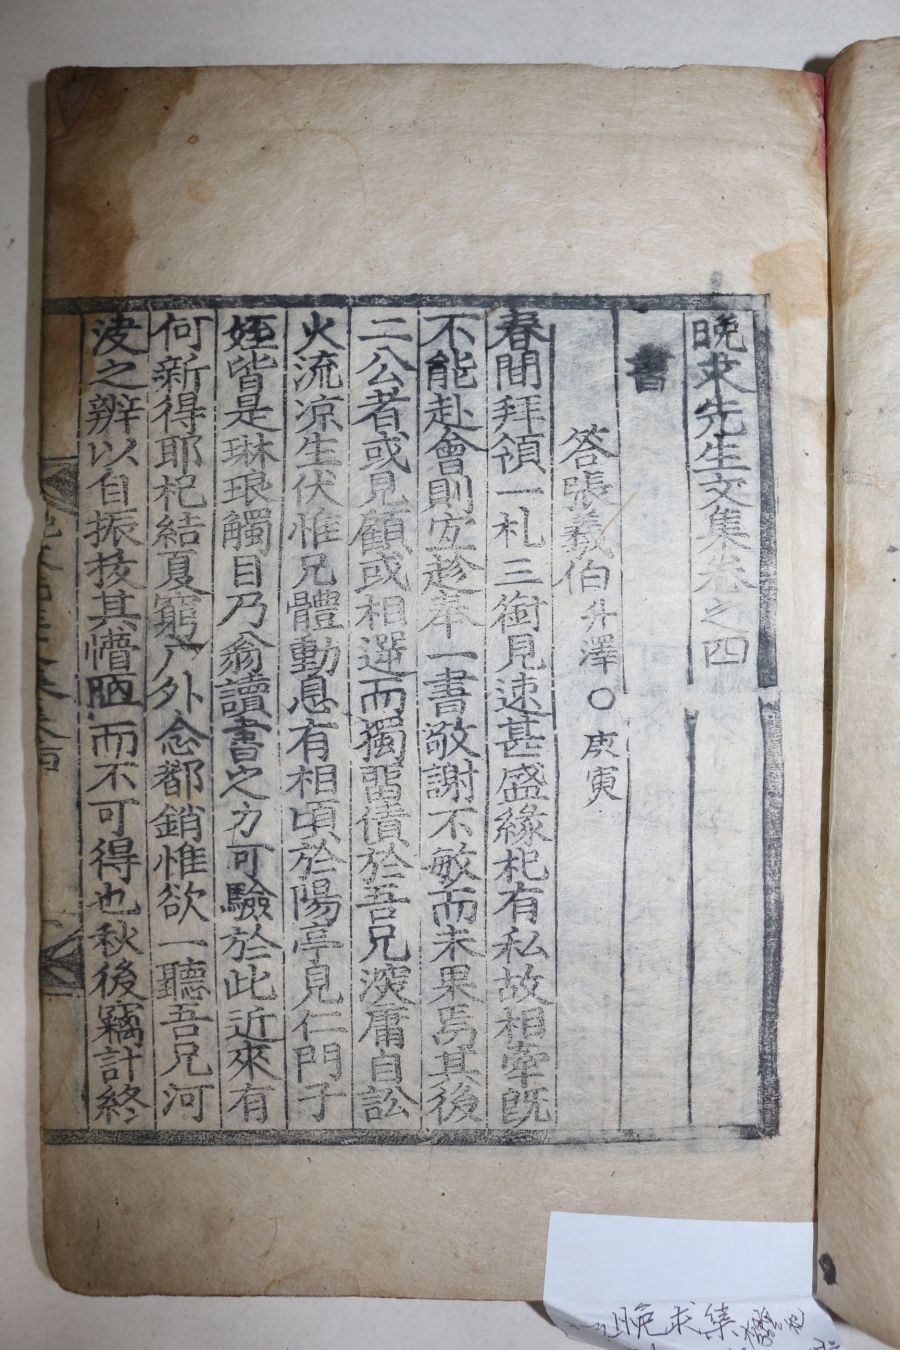 晚求先生文集卷之四
書
答張羲伯升澤○庚寅
春間拜領一札三銜見速甚盛緣杞有私故相牽旣
不能赴會則宜趁奉一書敬謝不敏而未果焉其後
二公者或見顧或相選而獨留債於吾兄深庸自訟
火流凉生伏惟兄體動息有相頃於陽亭見仁門子
姪皆是琳琅觸目乃翁讀書之力可驗於此近來有
何新得耶杞結夏窮广外念都銷惟欲一聽吾兄河
決之辨以自振拔其懵陋而不可得也秋後竊計終
晚求先生文集卷四
晚求集